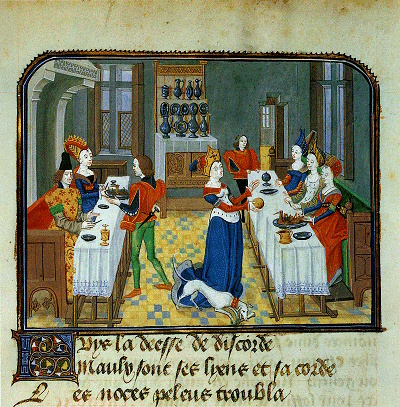 Puys la deesse de discorde
mauly sont ses lyens et sa corde
Les noces peleus troubla